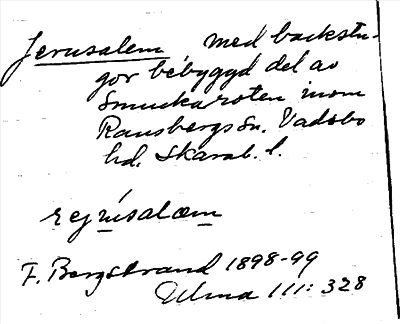 Jerusalem med backstu-
gor bebyggd del av
Smuckaroten inom
Ransbergs sn. Vadsbo
hd. Skarab. l.
rejúsalæm
F. Bergstrand 1898-99
Ulma 111: 328